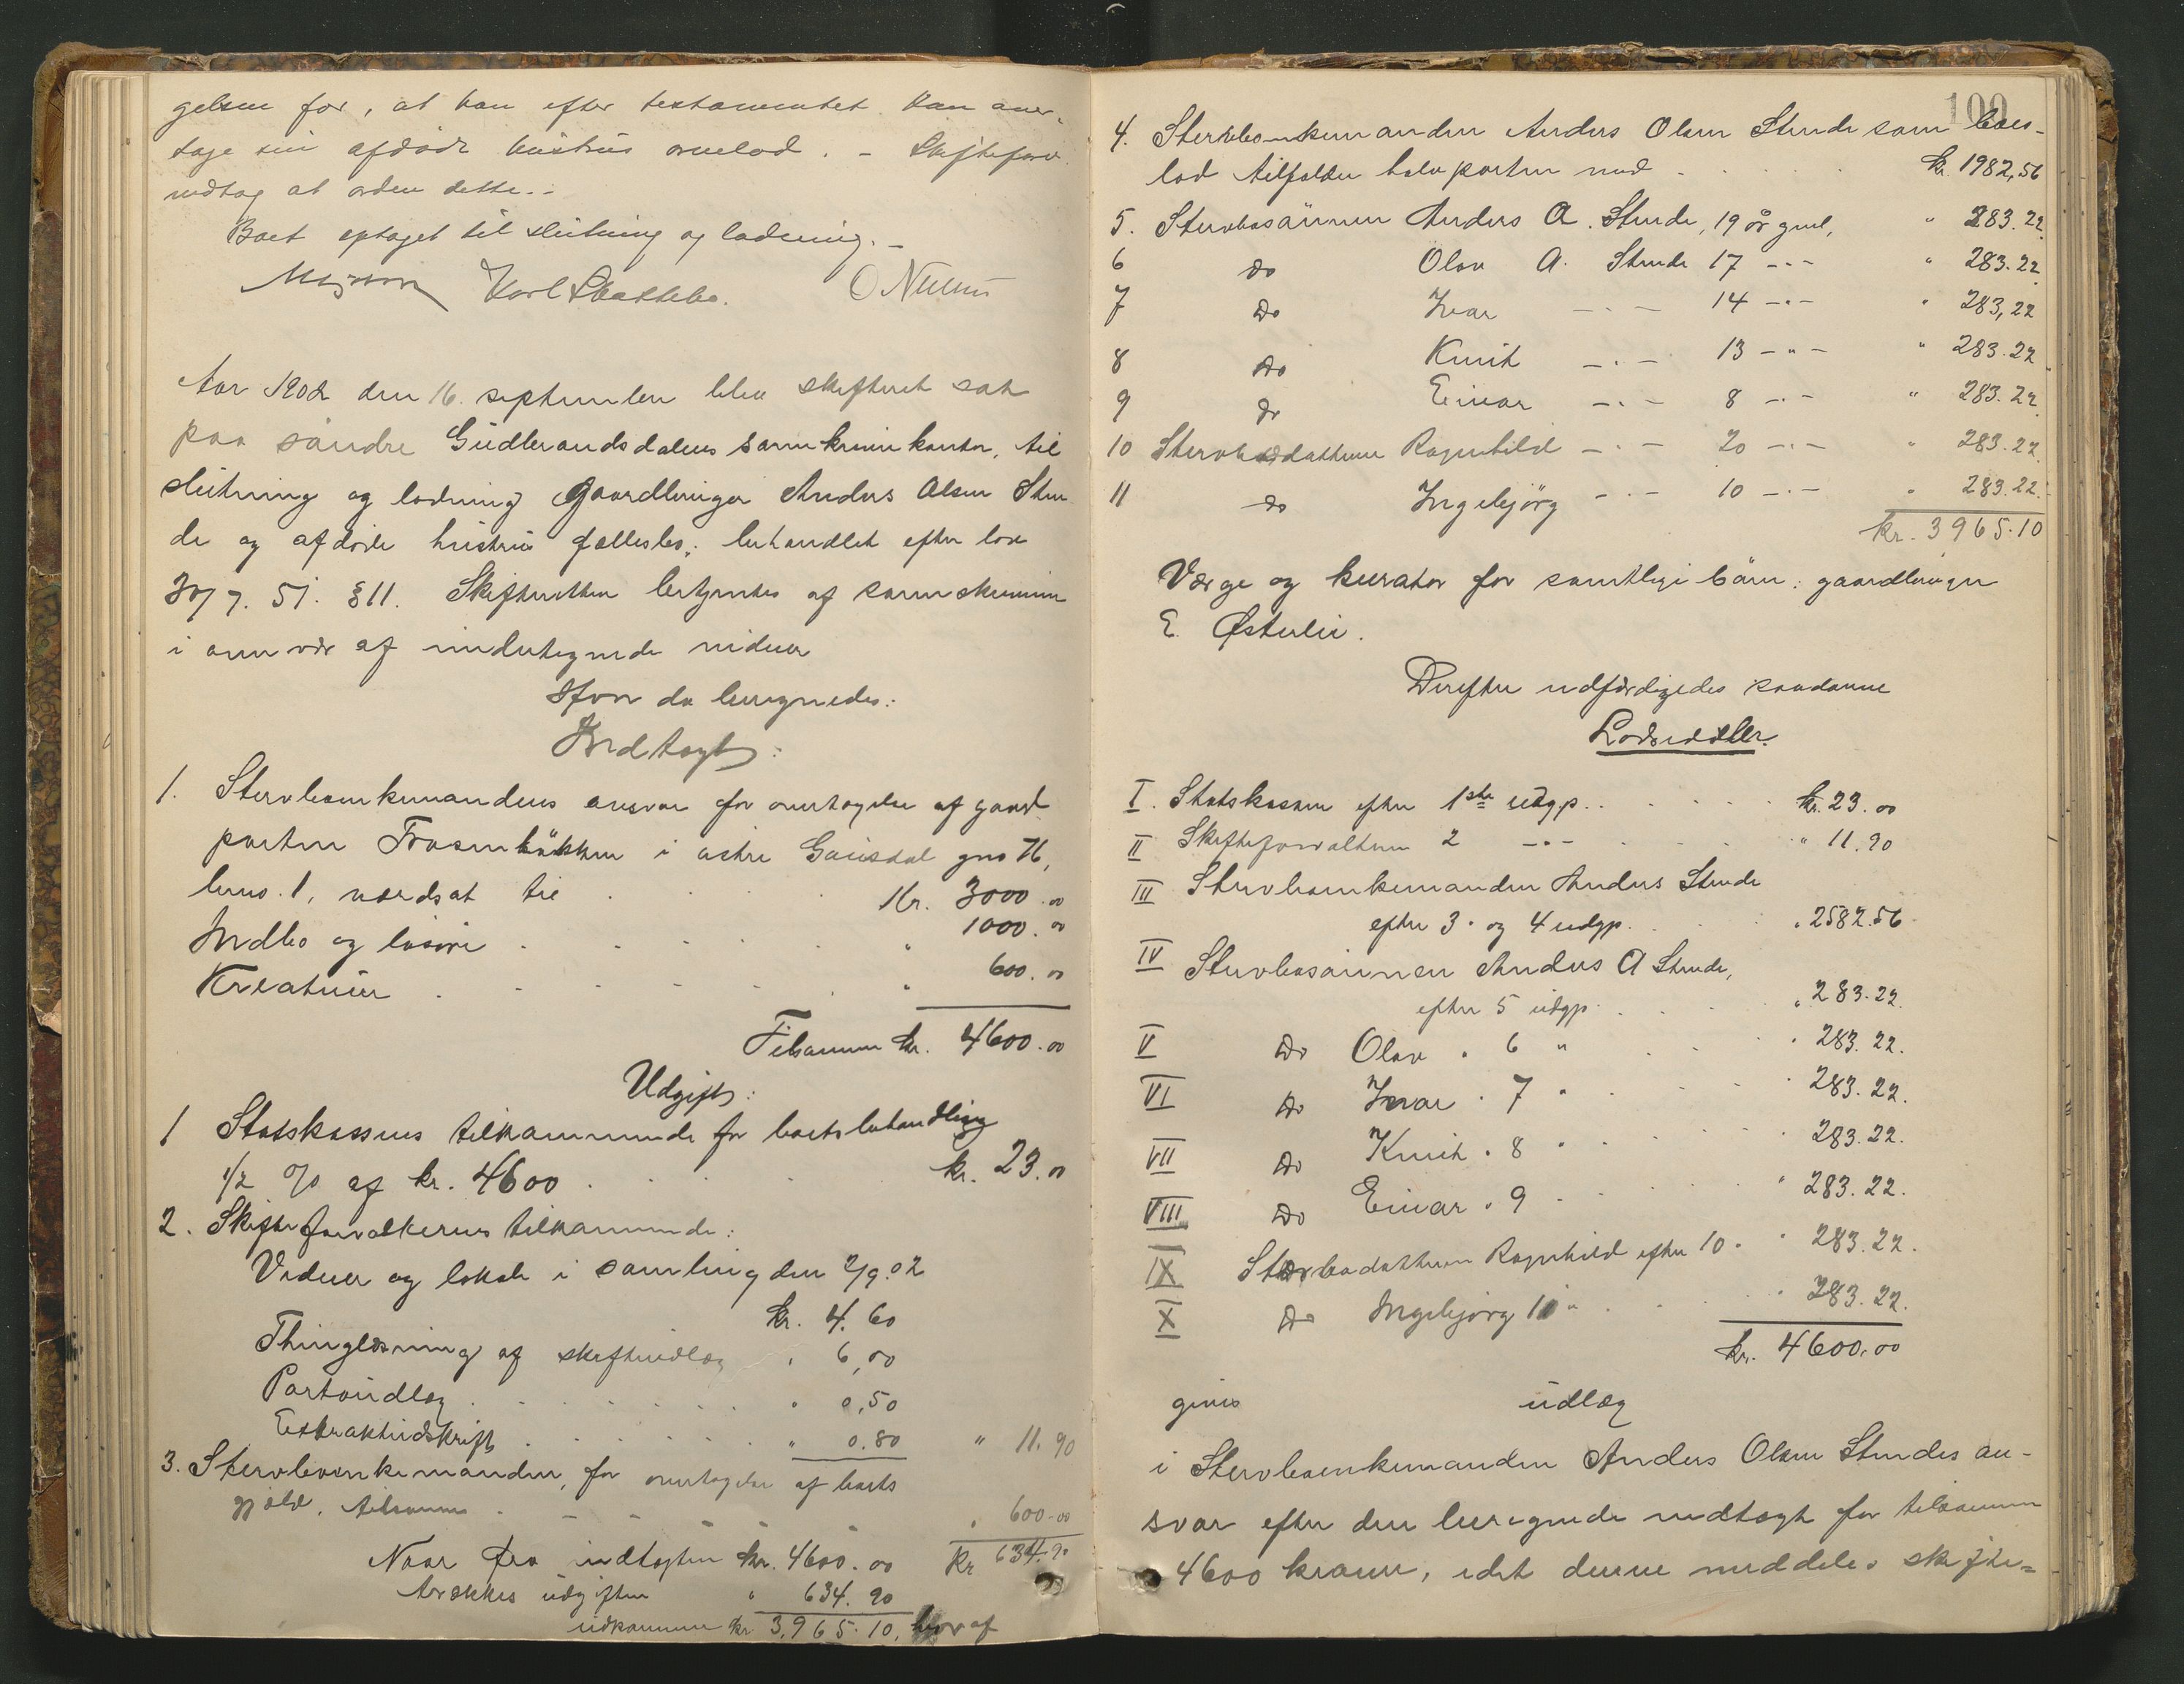 gelsen for, at han efter testamentet kan over-
tage sin afdöde hüstrüs arvelod. - Skifteforv.
modtog at orden dette.-
Boet optaget til slütning og lodning.-
Karl Skattebo. O Nilsen
Aar 1902 den 16. september blev skifteret sat
paa söndre Güdbrandsdalens sorenskriverkontor, til
slütning og lodning gaardbrüger Anders Olsen Stru-
de og afdöde hüstrüs fællesbo, behandlet efter lov
30/7. 51. § 11. Skifteretten betjentes af sorenskriveren
i overvær af undertegnede vidner
Hvor da beregnedes:
Indtægt:
1. Stervboenkemandens ansvar for overtagelse af gaard-
parten Frosenbakken i östre Gaüsdal gno 76,
brno. 1, værdsat til Kr. 3000.00
Indbo og lösöre " 1000.00
Kreatürer " 600.00
Tilsammen kr. 4600.00
Udgift:
1 Statskassens tilkommende for boets behandling
1/2 % af kr. 4600 kr. 23.00
2. Skifteforvalterens tilkommende:
Vidner og lokale i samling den 2/9.02
kr. 4.60
Thinglæsning af skifteudlæg " 6,00
Portoüdlæg " 0,50
Extraktüdskrift " 0.80 " 11.90
3. Stervboenkemanden, for overtagelse af boets
gjæld, tilsammen " 600.00
Kr 634.90
Naar fra indtægten kr. 4600.00
trækkes üdgiften " 634.90
üdkommer kr 3,965.10, hvoraf
100
4. Stervboenkemanden Anders Olsen Strude som boes-
lod tilfalder halvparten med kr. 1982,56
5. Stervbosönnen Anders A. Strude, 19 år gml, " 283.22
6 do Olav A. Strude 17 -"- " 283.22
7 do Ivar -"- 14 -"- " 283,22
8 do Knüt -"- 13 -"- " 283.22
9 do Einar -"- 8 -"- " 283.22
10 Stervbodatteren Ragnhild -"- 20 -"- " 283.22
11 do Ingebjörg -"- 10 -"- " 283.22
kr. 3965.10
Værge og kurator for samtlige börn: gaardbrüger
E. Østerlie.
Derefter udfærdigedes saadanne
Lodsedler.
I. Statskassen efter 1ste üdgp. kr. 23.00
II Skifteforvalteren 2 -"- " 11.90
III Stervboenkemanden Anders Strude
efter 3. og 4 udgp. " 2582.56
IV Stervbosönnen Anders A Strude,
efter 5 üdgp. " 283.22
V do Olav " 6 " " 283.22.
VI do Ivar " 7 " " 283.22.
VII do Knüt " 8 " " 283.22.
VIII do Einar " 9 " 283.22.
IX Stervbodatteren Ragnhild efter 10 " " 283.22.
X do Ingebjörg 11 " " 283.22.
kr. 4600.00
gives üdlæg
i Stervboenkemanden Anders Olsen Strudes an-
svar efter den beregnede indtægt for tilsammen
4600 kroner, idet denne meddeles skifte=